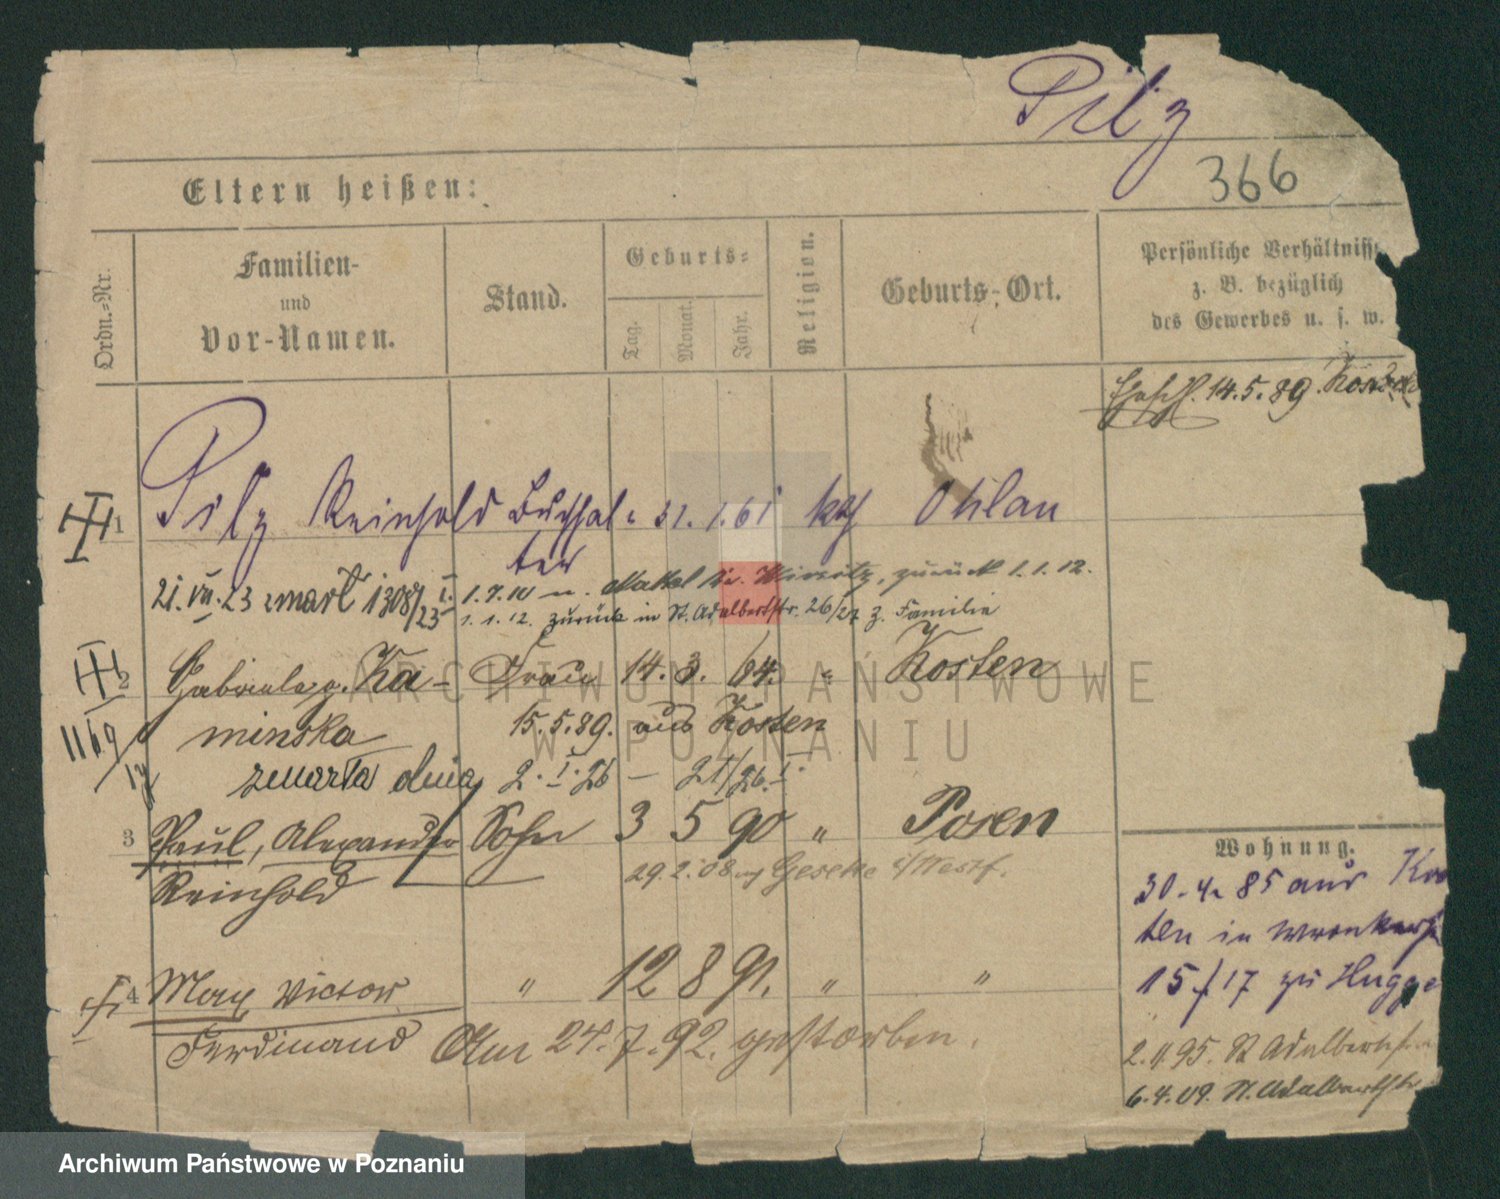 Pilz
366
Eltern heißen:
Ordn.-Nr.
Familien-
und
Vor-Namen.
Stand.
Geburts-
Tag.
Monat.
Jahr.
Religion.
Geburts-Ort.
Persönliche Verhältniss
z. B. bezüglich
des Gewerbes u. s. w.
14.5.89
1 Pilz Reinhold Buchhal- 31. 1. 61 kth Ohlau
ter
21. VII. 23 zmarł 1308/23
1.7.10 n. Nakel Kr. Wirsitz, zurück 1.1.12.
1.1.12. zurück in St. Adalbertstr. 26/27 z. Familie
2 Gabriele g. Ka- Frau 14. 3. 64. " Kosten
minska 15.5.89. aus Kosten
zmarła dnia 2. I. 26 — 21/26. I.
3 Paul, Alexander Sohn 3 5 90 " Posen
Reinhold
29.2.08 Geseke i/Westf.
4 Max Victor " 12 8 91. " "
Ferdinand Am 24.7.92. gestorben.
Wohnung.
30.4.85 aus
ten in Wronkers
15/17 zu Hugge
2.4.95. St Adalbertst
6.4.09. St. Adalbertstr
ARCHIWUM PAŃSTWOWE
W POZNANIU
Archiwum Państwowe w Poznaniu